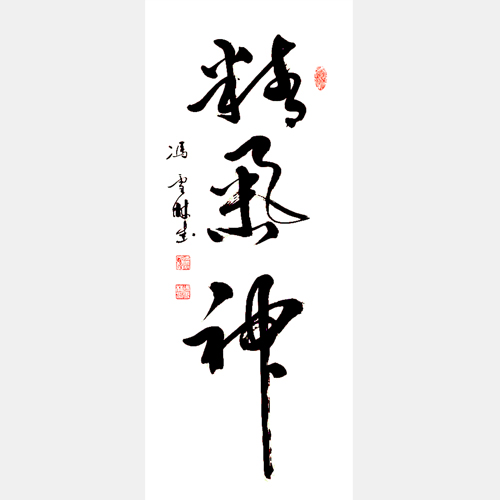 精氣神
馮雪林書